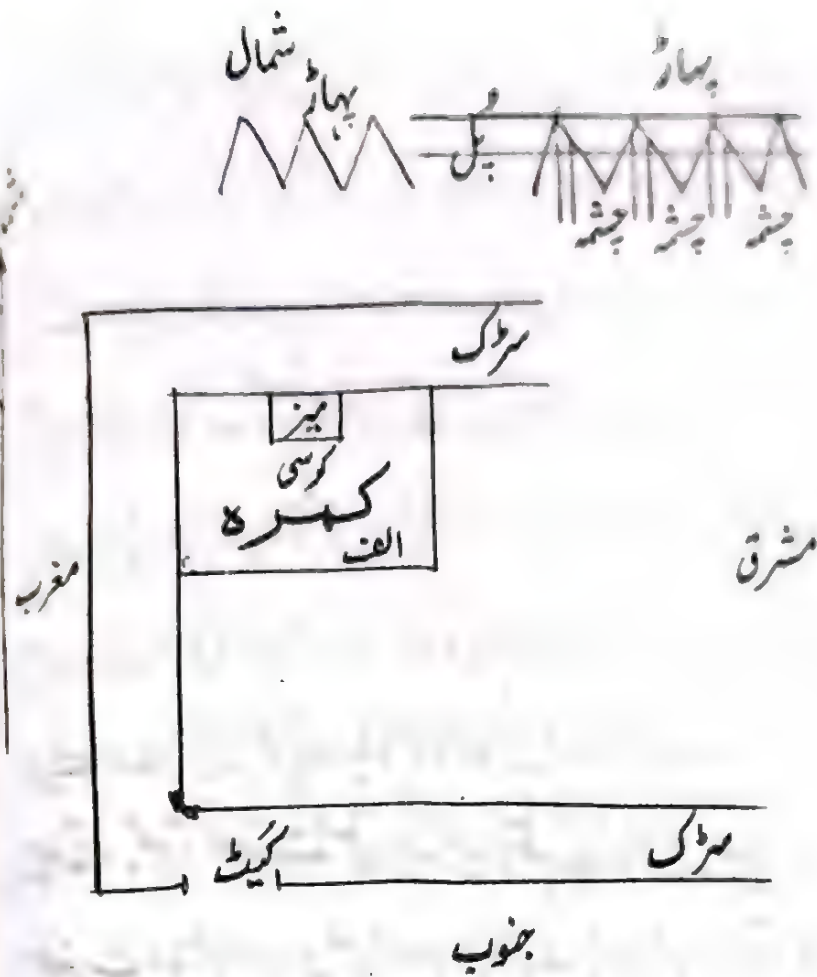 شمال
پہاڑ
پہاڑ
پل
چشمہ چشمہ چشمہ
سڑک
میز
کرسی
کمرہ
الف
مشرق
مغرب
سڑک
گیٹ
جنوب